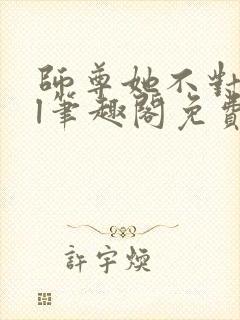 師尊她不對
l筆趣閣免費
許宇煥